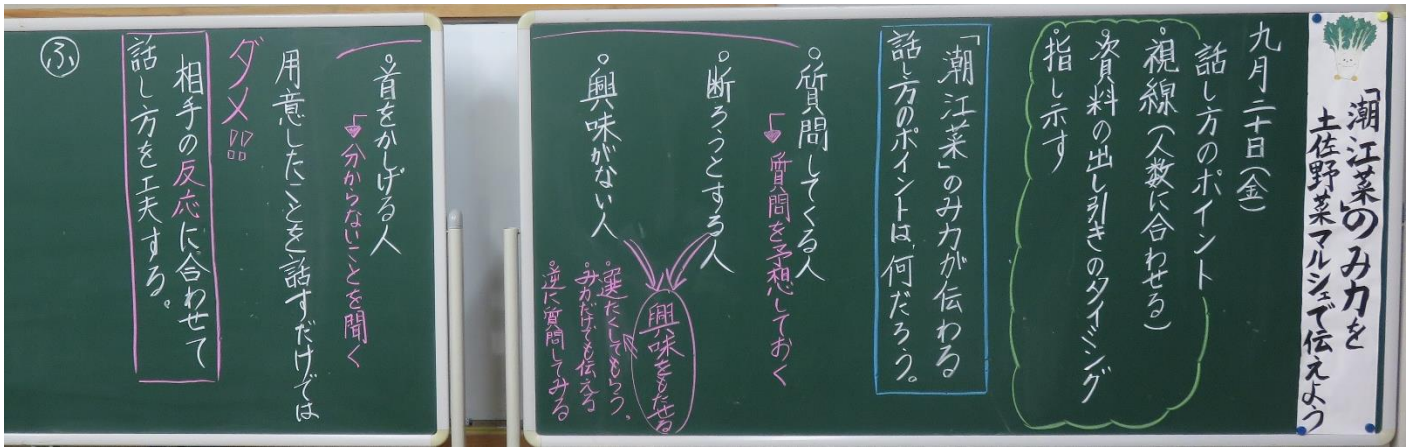 「潮江菜」のみ力を
土佐野菜マルシェで伝えよう
九月二十日(金)
話し方のポイント
・視線(人数に合わせる)
・資料の出し引きのタイミング
・指し示す
「潮江菜」のみ力が伝わる
話し方のポイントは、何だろう。
○質問してくる人
→質問を予想しておく
○断ろうとする人
○興味がない人
興味をもたせる
○選たくしてもらう、
みカだけでも伝える
○逆に質問してみる
○首をかしげる人
→分からないことを聞く
用意したことを話すだけでは
ダメ!!
相手の反応に合わせて
話し方を工夫する。
ふ